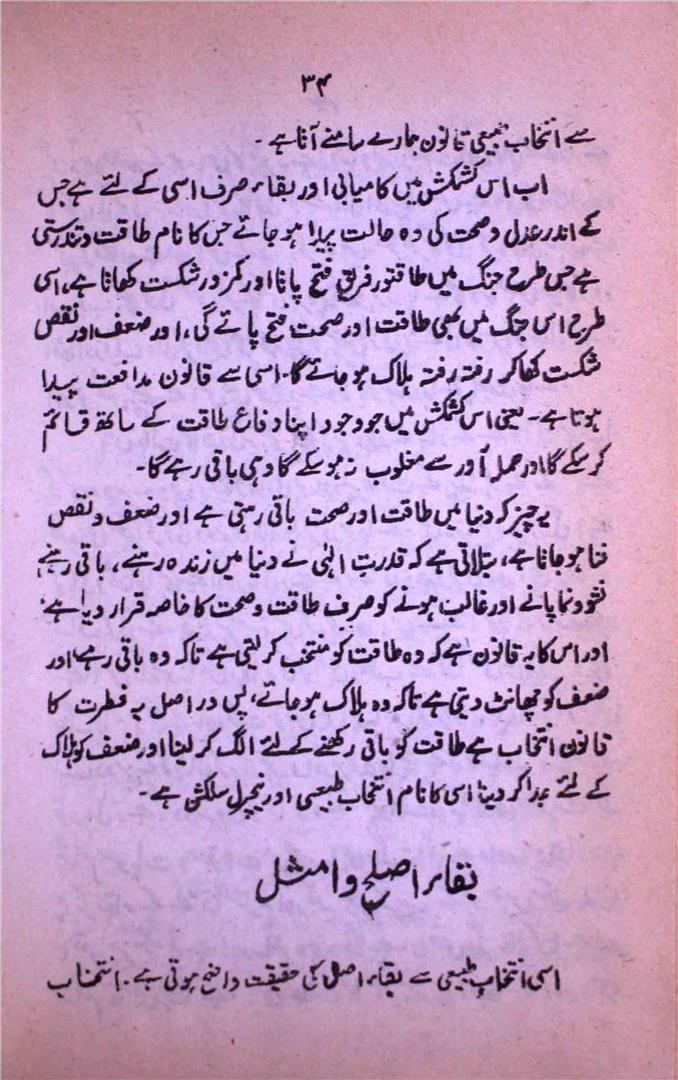 ۳۴
سے انتخاب طبیعی قانون ہمارے سامنے آتا ہے ۔
اب اس کشمکش میں کامیابی اور بقاء صرف اسی کے لئے ہے جس
کے اندر عدل و صحت کی وہ حالت پیدا ہو جائے جس کا نام طاقت و تندرستی
ہے جس طرح جنگ میں طاقتور فریق فتح پاتا اور کمزور شکست کھاتا ہے، اسی
طرح اس جنگ میں بھی طاقت اور صحت فتح پائے گی ، اور ضعف اور نقص
شکست کھا کر رفتہ رفتہ ہلاک ہو جائے گا۔ اسی سے قانون مدافعت پیدا
ہوتا ہے ۔ یعنی اس کشمکش میں جو وجود اپنا دفاع طاقت کے ساتھ قائم
کر سکے گا اور حملہ آور سے مغلوب نہ ہو سکے گا وہی باقی رہے گا ۔
یہ چیز کہ دنیا میں طاقت اور صحت باقی رہتی ہے اور ضعف و نقص
فنا ہو جاتا ہے ، بتلاتی ہے کہ قدرتِ الٰہی نے دنیا میں زندہ رہنے ، باقی رہنے
نشوونما پانے اور غالب ہونے کو صرف طاقت و صحت کا خاصہ قرار دیا ہے
اور اس کا یہ قانون ہے کہ وہ طاقت کو منتخب کر لیتی ہے تاکہ وہ باقی رہے اور
ضعف کو چھانٹ دیتی ہے تاکہ وہ ہلاک ہو جائے ، پس دراصل یہ فطرت کا
قانون انتخاب ہے طاقت کو باقی رکھنے کے لئے الگ کر لینا اور ضعف کو ہلاک
کے لئے جدا کر دینا اسی کا نام انتخاب طبیعی اور نیچرل سلکشن ہے ۔
بقاء اصلح و امثل
اسی انتخابِ طبیعی سے بقاء اصلح کی حقیقت واضح ہوتی ہے ۔ انتخاب